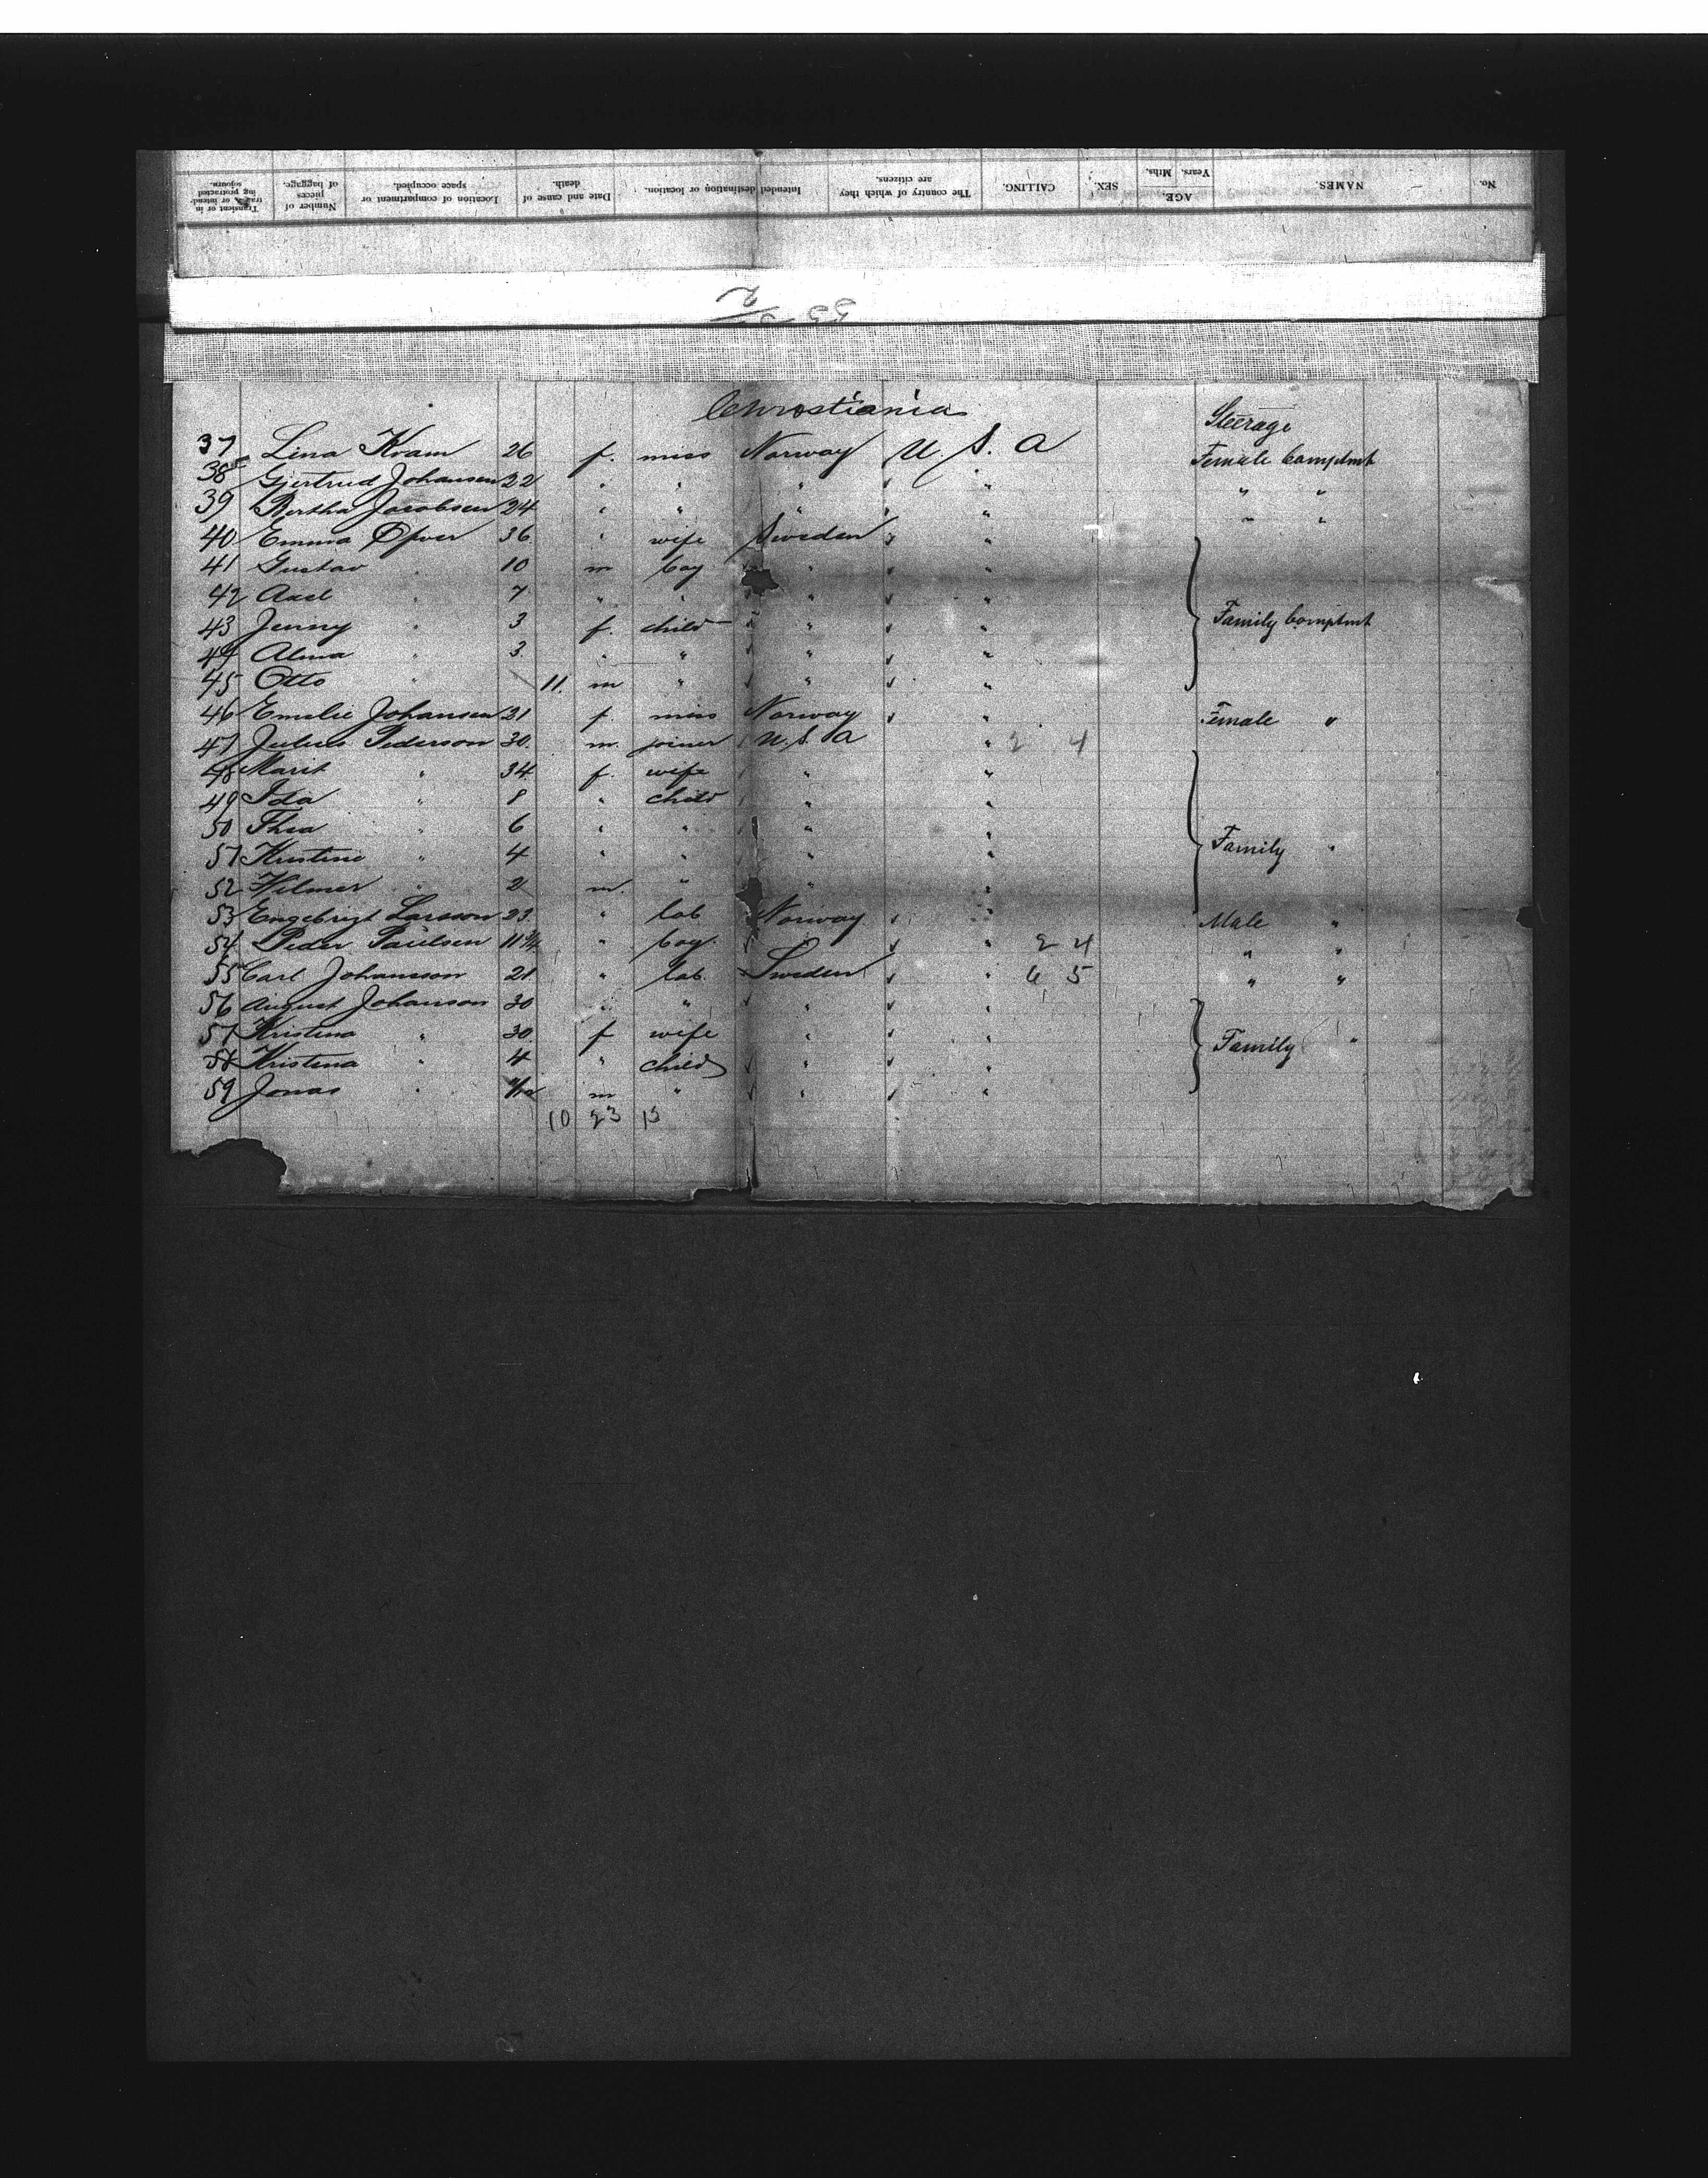 No. NAMES. AGE. Years. Mths. SEX. CALLING. The country of which they are citizens. Intended destination or location. Date and cause of death. Location of compartment or space occupied. Number of pieces of baggage. Transient or in transit, or intending protracted sojourn.
Christiania
Steerage
37 Lina Kvam 26 f. miss Norway U. S. A Female Comptmt
38 Gjertrud Johansen 22 " " " " " "
39 Bertha Jacobsen 24 " " " " " "
40 Emma Öfver 36 " wife Sweden "
41 Gustav " 10 m boy " "
42 Axel " 7 " " " "
43 Jenny " 3 f. child " " Family Comptmt
44 Alma " 3 " " " "
45 Otto " 11. m " " "
46 Emelie Johansen 21 f. miss Norway " Female "
47 Julius Pederson 30. m. joiner U.S.A " 2 4
48 Marit " 34 f. wife " "
49 Ida " 8 " child " "
50 Thea " 6 " " " "
51 Kristine " 4 " " " " Family "
52 Hilmer " 2 m. " " "
53 Engebrigt Larsson 23. " lab Norway " Male "
54 Peder Paulsen 11 3/4 " boy. " " 2 4 " "
55 Carl Johansson 21 " lab. Sweden " 6 5 " "
56 August Johanson 30 " " " "
57 Kristina " 30. f wife " " Family "
58 Kristina " 4 " child " "
59 Jonas " m " " "
10 23 15